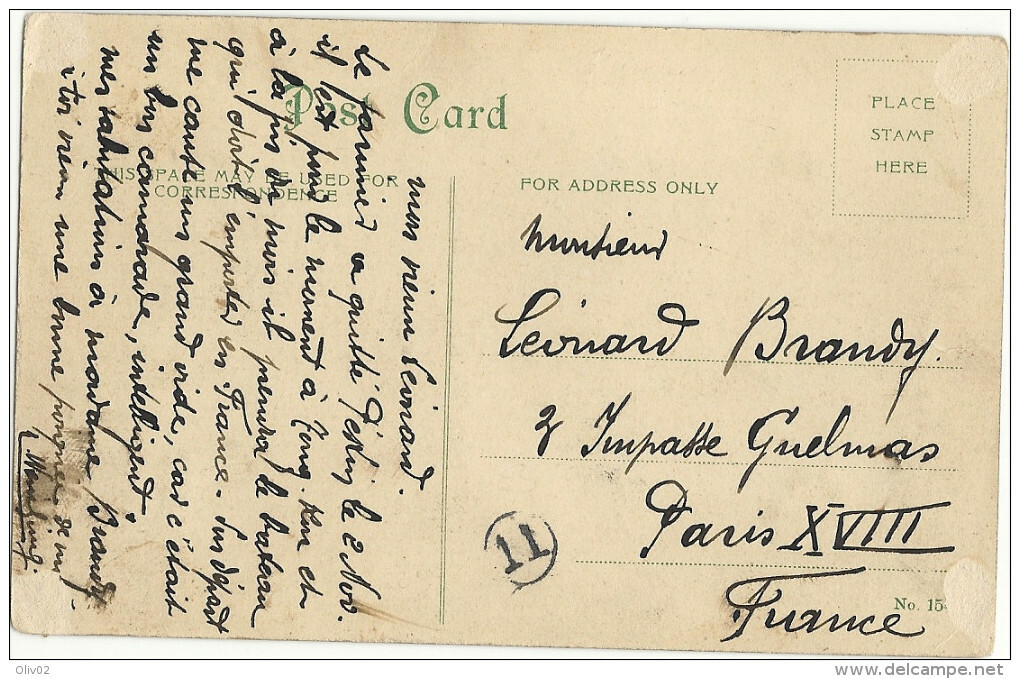 Post Card
THIS SPACE MAY BE USED FOR
CORRESPONDENCE
PLACE
STAMP
HERE
FOR ADDRESS ONLY
mon vieux Léonard.
Le fourrier a quitté Pékin le 2 Nov.
il est pour le moment à Tong-Kou et
à la fin du mois il prendra le bateau
qui doit l'emporter en France. Son départ
me cause un grand vide, car c'était
un bon camarade, intelligent.
mes salutations à madame Brandy
à toi vieux une bonne poignée de main
Monsieur
Léonard Brandy.
2 Impasse Guelmas
Paris XVIIII
France
11
No. 15
Oliv02
delcampe.net